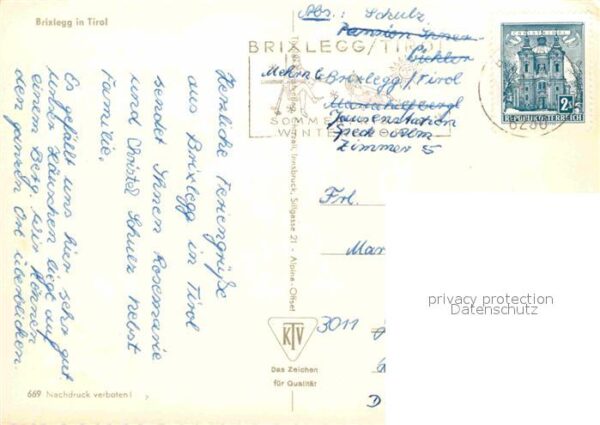 Brixlegg in Tirol
Herzliche Feriengrüße
aus Brixlegg in Tirol
sendet Ihnen Rosemarie
und Christel Schuer nebst
Familie.
Es gefällt uns hier sehr gut
unser Häuschen liegt auf
einem Berg. Wir können
den ganzen Ort überblicken.
669 Nachdruck verboten!
Innsbruck, Sillgasse 21 - Alpine-Offset
KTV
Das Zeichen
für Qualität
BRIXLEGG/TIROL
SOMMER
WINTER
6230
Abs.: Schulz
Pension
Mehrn 6 Brixlegg/Tirol
Jausenstation
Zimmer 5
CHRISTKINDL
2S
REPUBLIK ÖSTERREICH
Frl.
Mar
3011
D
privacy protection
Datenschutz